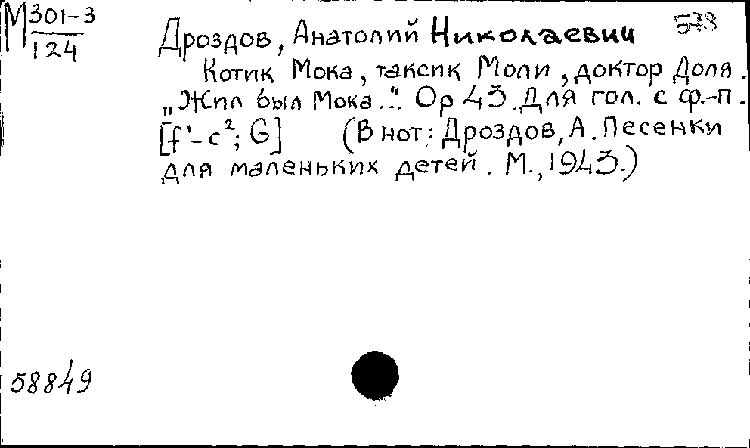 М 301-3
124
Дроздов, Анатолий Николаевич
Котик Мока, таксик Моли, доктор Доля.
„Жил был Мока...". Ор 43. Для гол. с ф.-п.
[f¹-c²; G] (В нот: Дроздов, А. Песенки
для маленьких детей. М., 1943.)
58849